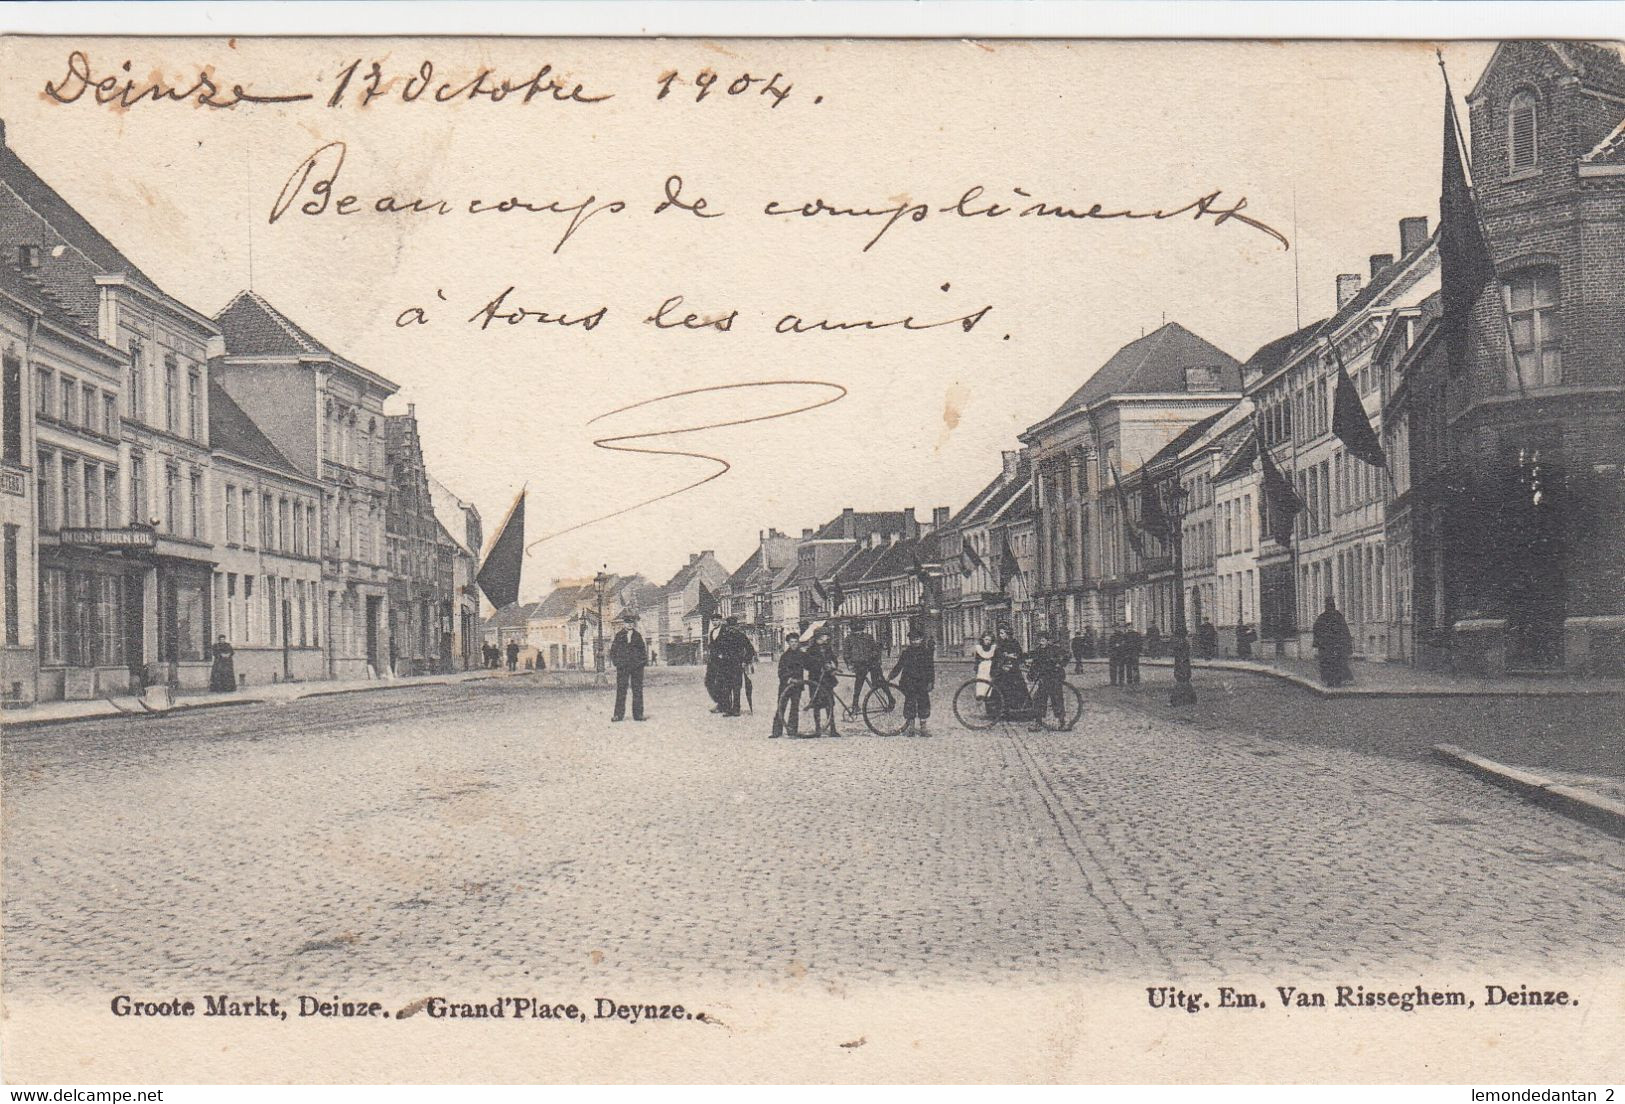 Deinze 17 Octobre 1904.
Beaucoup de compliments
à tous les amis.
IN DEN GOUDEN BOL
Groote Markt, Deinze. Grand'Place, Deynze.
Uitg. Em. Van Risseghem, Deinze.
delcampe.net
lemondedantan 2